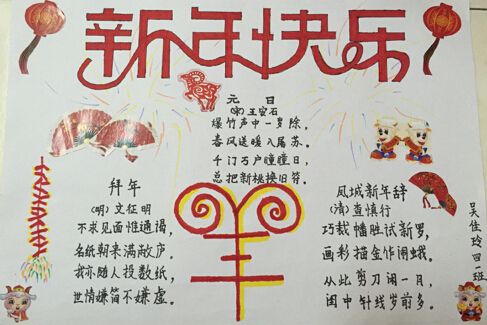 新年快乐
元日
(宋)王安石
爆竹声中一岁除，
春风送暖入屠苏。
千门万户曈曈日，
总把新桃换旧符。
拜年
(明)文征明
不求见面惟通谒，
名纸朝来满敝庐。
我亦随人投数纸，
世情嫌简不嫌虚。
凤城新年辞
(清)查慎行
巧裁幡胜试新罗，
画彩描金作闹蛾。
从此剪刀闲一月，
闺中针线岁前多。
吴佳玲 四一班